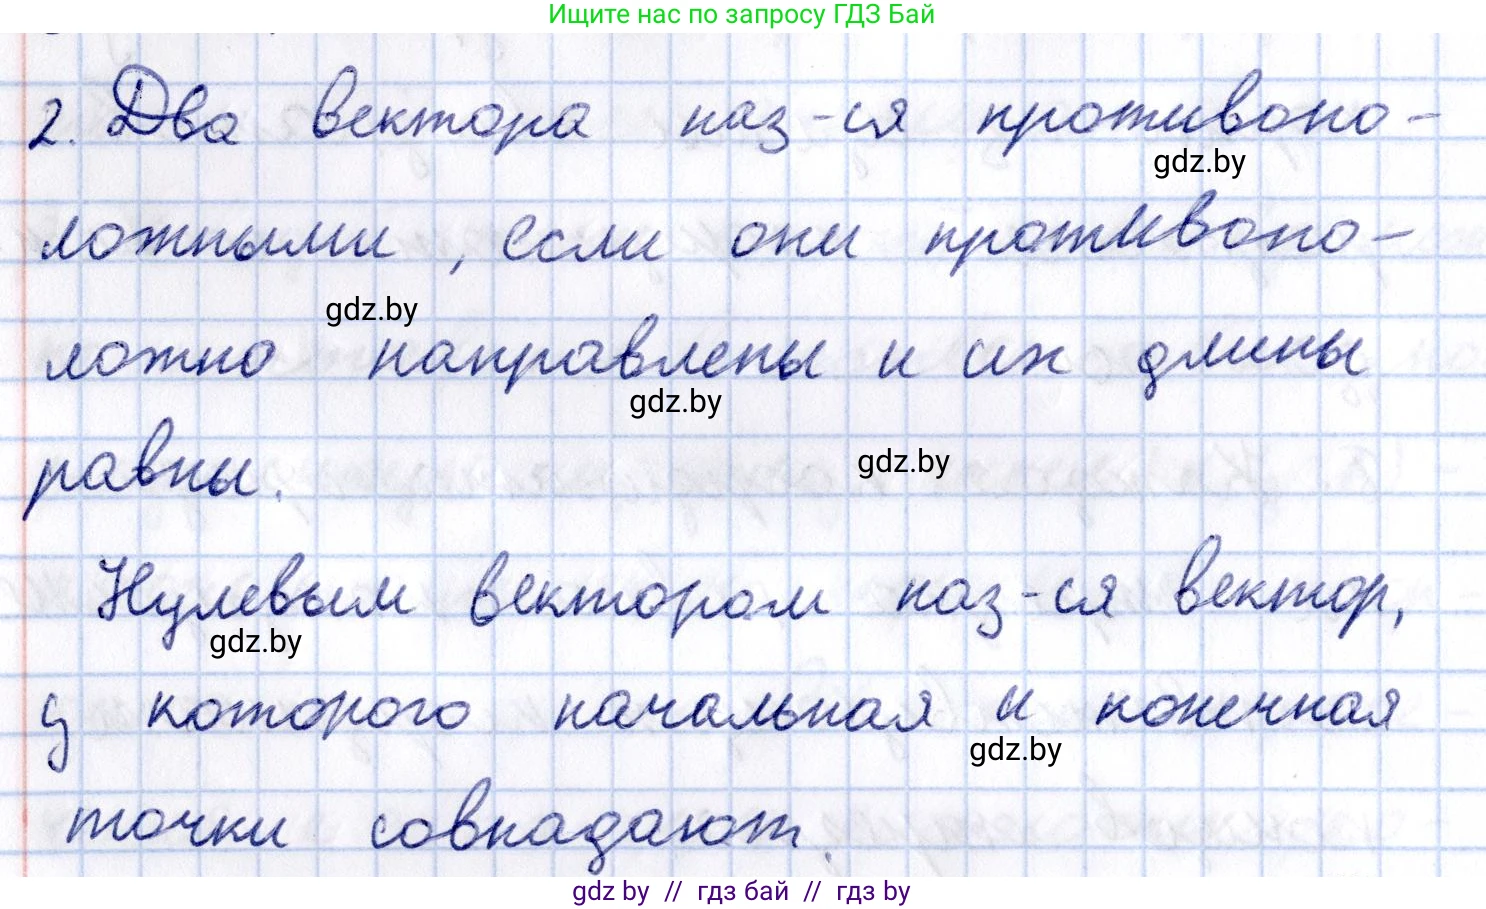 Ищите нас по запросу ГДЗ Бай
2. Два вектора наз-ся противопо-
gdz.by
ложными, если они противопо-
gdz.by
ложно направлены и их длины
gdz.by
gdz.by
равны.
Нулевым вектором наз-ся вектор,
gdz.by
у которого начальная и конечная
gdz.by
точки совпадают.
gdz by // гдз бай // гдз by